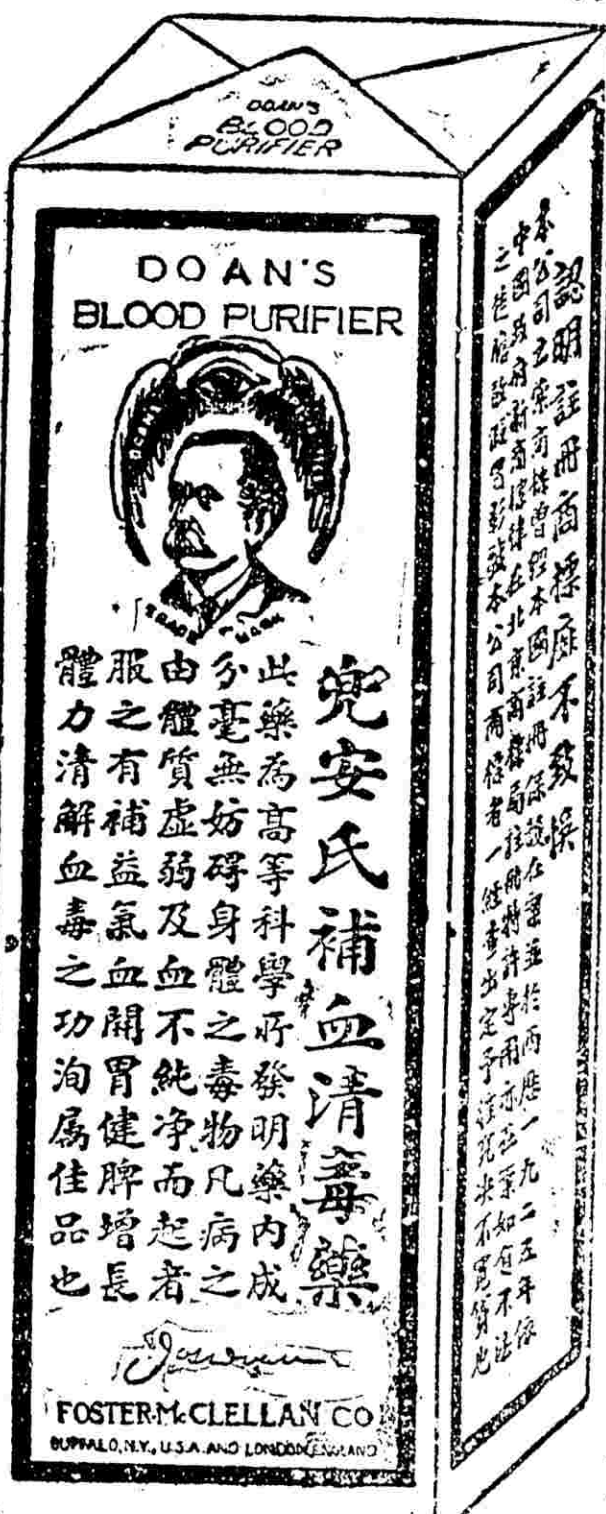 DOAN'S
BLOOD
PURIFIER
DOAN'S
BLOOD PURIFIER
TRADE MARK
兜安氏補血清毒藥
此藥為高等科學所發明藥內成
分毫無妨碍身體之毒物凡病之
由體質虛弱及血不純净而起者
服之有補益氣血開胃健脾增長
體力清解血毒之功洵属佳品也
FOSTER-McCLELLAN CO
BUFFALO, N.Y., U.S.A. AND LONDON, ENGLAND
認明註冊商標庶不致悞
本公司各藥商標曾經本國註冊保護在案並於西曆一九二五年依
中國政府新商標律在北京商標局註冊特許專用亦在案如有不法
之徒膽敢冒影戤本公司商標者一經查出定予追究決不寬貸也